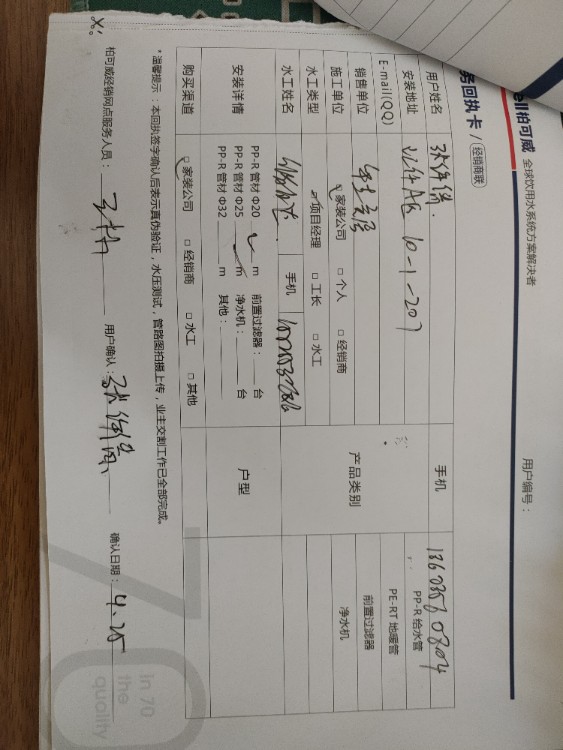 ell柏可威 全球饮用水系统方案解决者
用户编号：
务回执卡 / 经销商联
用户姓名
手机
安装地址 10-1-207
PP-R 给水管
E-mail(QQ)
PE-RT 地暖管
销售单位
产品类别
前置过滤器
施工单位 家装公司 □ 个人 □ 经销商
净水机
水工类型 项目经理 □ 工长 □ 水工
水工姓名 手机
安装详情
PP-R 管材 Φ20 m 前置过滤器： 台
PP-R 管材 Φ25 m 净水机： 台
PP-R 管材 Φ32 m 其他：
户型
购买渠道 □ 家装公司 □ 经销商 □ 水工 □ 其他
* 温馨提示：本回执签字确认后表示真伪验证，水压测试，管路图拍摄上传，业主交割工作已全部完成。
柏可威经销网点服务人员： 用户确认： 确认日期：4.25
in 70
the
quality